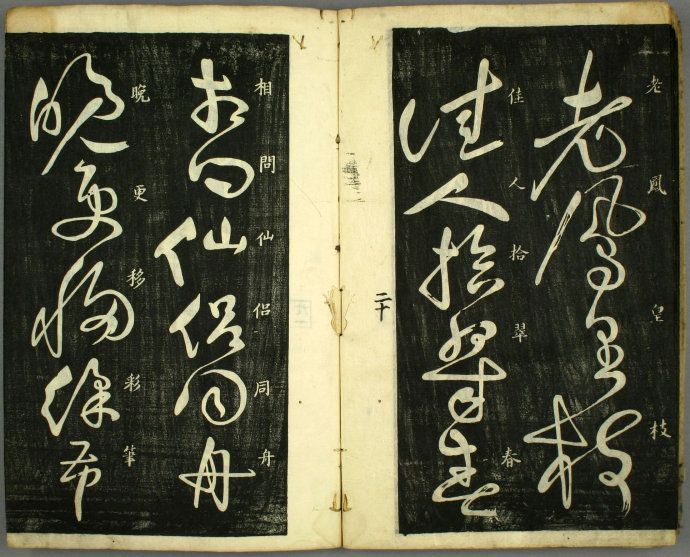 老鳳皇枝
老鳳皇枝
佳人拾翠春
佳人拾翠春
二十
相問仙侶同舟
相問仙侶同舟
晩更移彩筆
晩更移彩筆